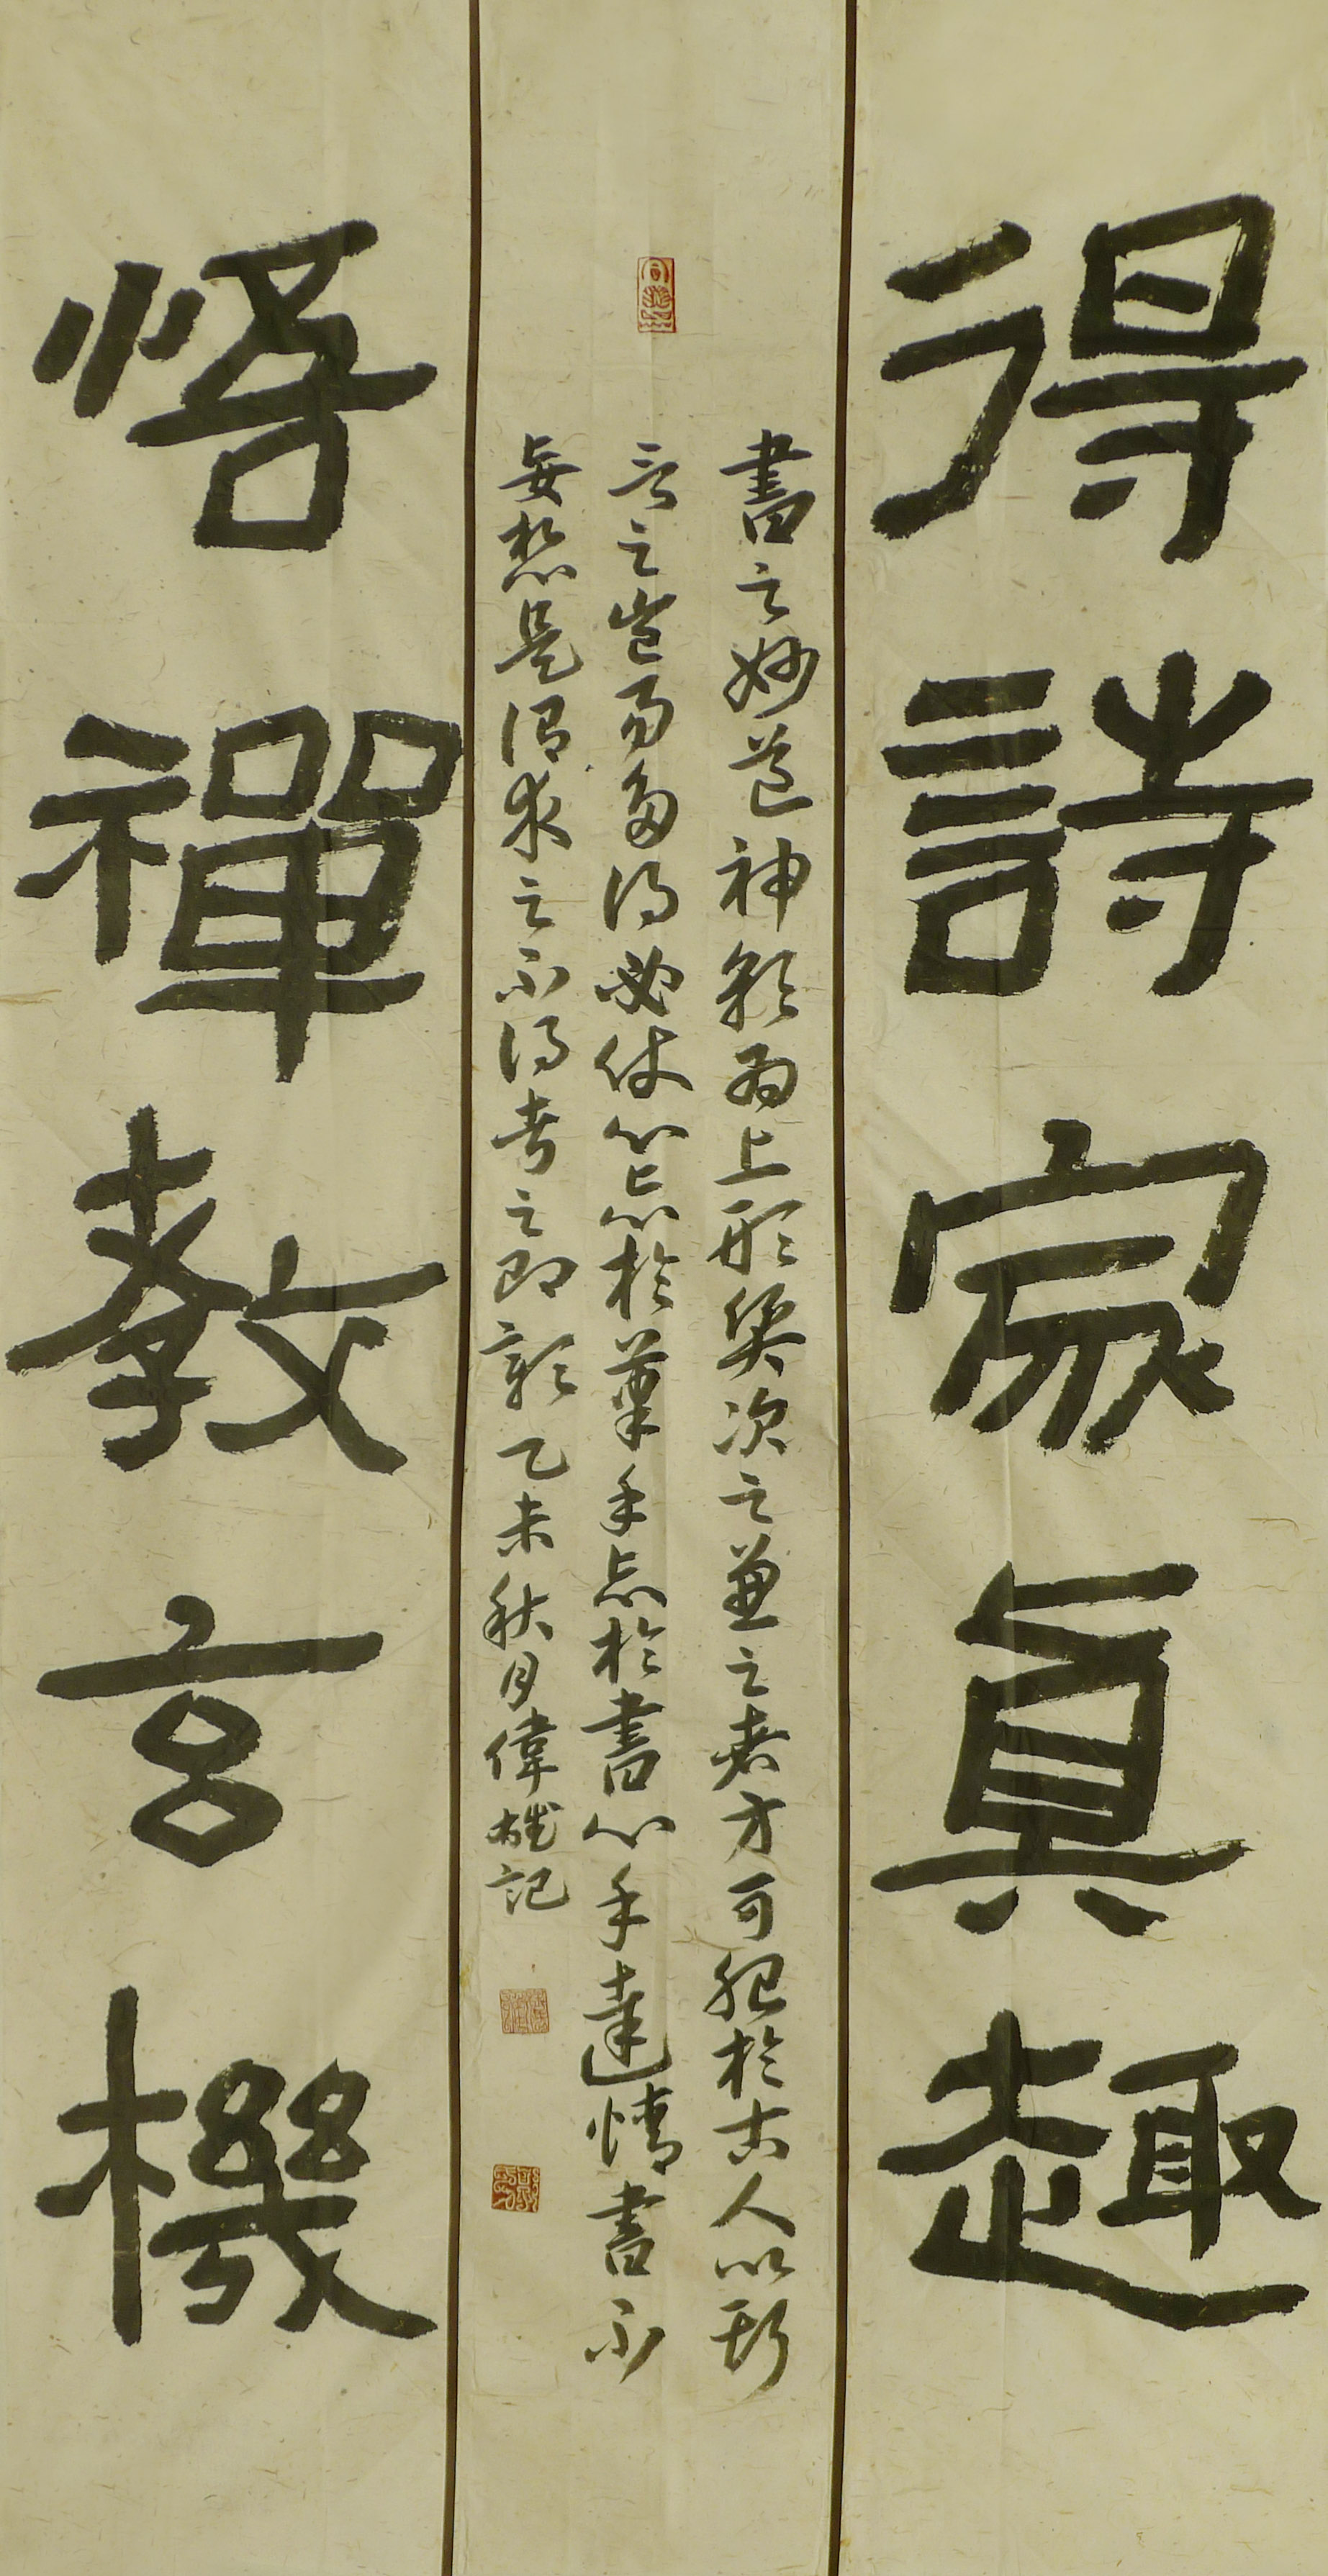 得詩家眞趣
書之妙道神彩為上形質次之兼之者方可紹於古人以斯
言之豈易多得必使心忘於筆手忘於書心手達情書不
妄想是謂求之不得考之即彰乙未秋月偉記
悟禪教玄機